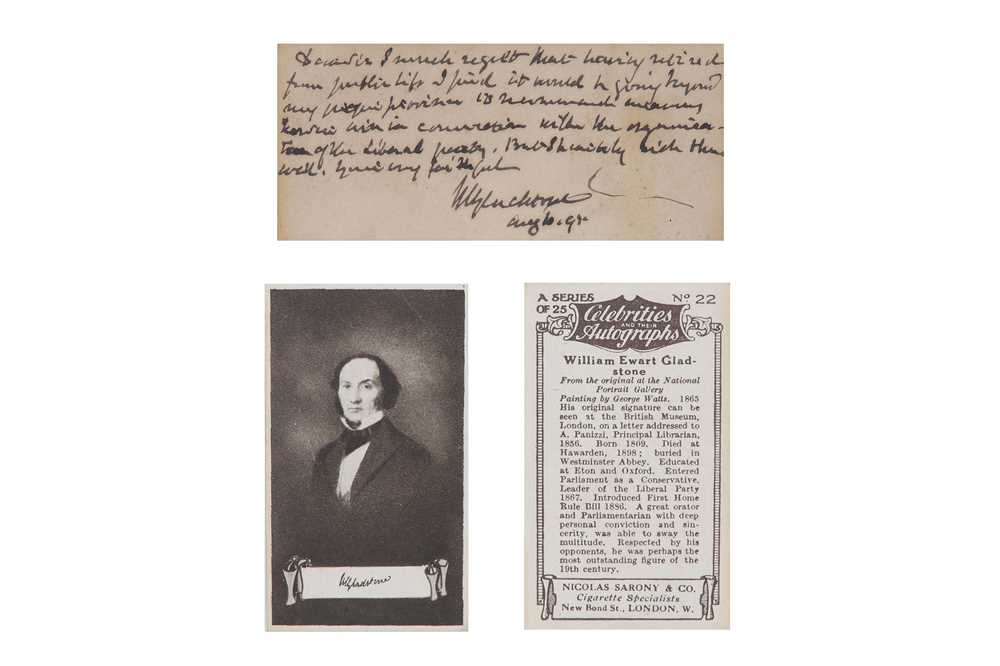 Dear Sir I much regret that having retired
from public life I find it would be going beyond
my proper province to recommend
in connection with the organisa-
tion of the Liberal party. But I heartily wish them
well. Your very faithful
WEGladstone
Aug 10. 97.
WEGladstone
A SERIES OF 25
No 22
Celebrities
AND THEIR
Autographs
William Ewart Glad-
stone
From the original at the National
Portrait Gallery
Painting by George Watts. 1865
His original signature can be
seen at the British Museum,
London, on a letter addressed to
A. Panizzi, Principal Librarian,
1856. Born 1809. Died at
Hawarden, 1898; buried in
Westminster Abbey. Educated
at Eton and Oxford. Entered
Parliament as a Conservative.
Leader of the Liberal Party
1867. Introduced First Home
Rule Bill 1886. A great orator
and Parliamentarian with deep
personal conviction and sin-
cerity, was able to sway the
multitude. Respected by his
opponents, he was perhaps the
most outstanding figure of the
19th century.
NICOLAS SARONY & CO.
Cigarette Specialists
New Bond St., LONDON, W.